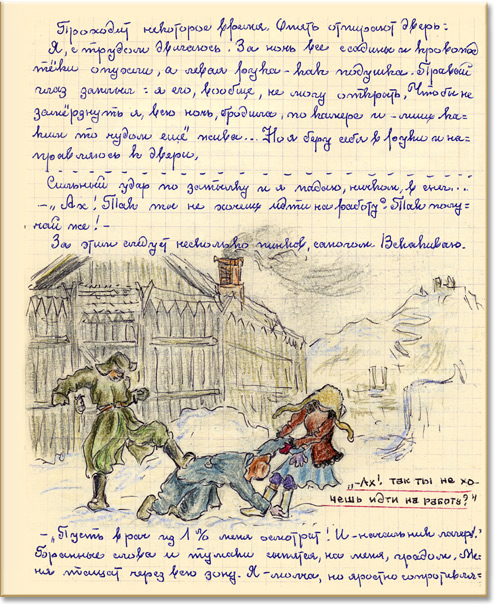 Проходит некоторое время. Опять отпирают дверь:
Я, с трудом двигаюсь. За ночь все ссадины и кровопод
тёки опухли, а левая рука - как подушка. Правый
глаз заплыл: я его, вообще, не могу открыть. Чтобы не
замёрзнуть я, всю ночь, бродила, по камере и - лишь ка-
ким то чудом ещё жива... Но я беру себя в руки и на-
правляюсь к двери.
Сильный удар по затылку и я падаю, ничком, в снег...
-„Ах! Так ты не хочешь идти на работу? Так полу-
чай же! -
За этим следует несколько пинков, сапогом. Вскакиваю.
„-Ах! так ты не хо-
чешь идти на работу?"
-„Пусть врач из 1% меня осмотрит! И - начальник лагеря!"
Бранные слова и тумаки сыпятся, на меня, градом. Ме-
ня тащат через всю зону. Я - молча, но яростно сопротивля-